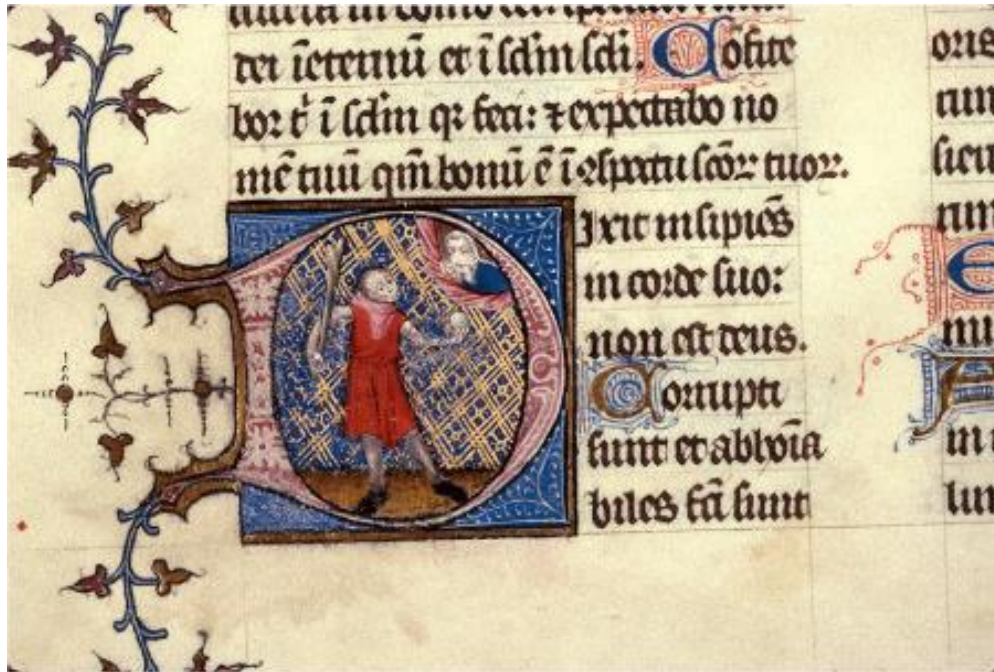 in domo
dei īeternū et ī sclm scli. Cōfite
bor t̄ ī sclm qr feci: ⁊ expectabo no
mē tuū qm̄ bonū ē ī ɔspectu scōꝝ tuoꝝ.
Dixit insipiēs
in corde suo:
non est deus.
Corrupti
sunt et abhoīa
biles fc̄i sunt
E
A
in